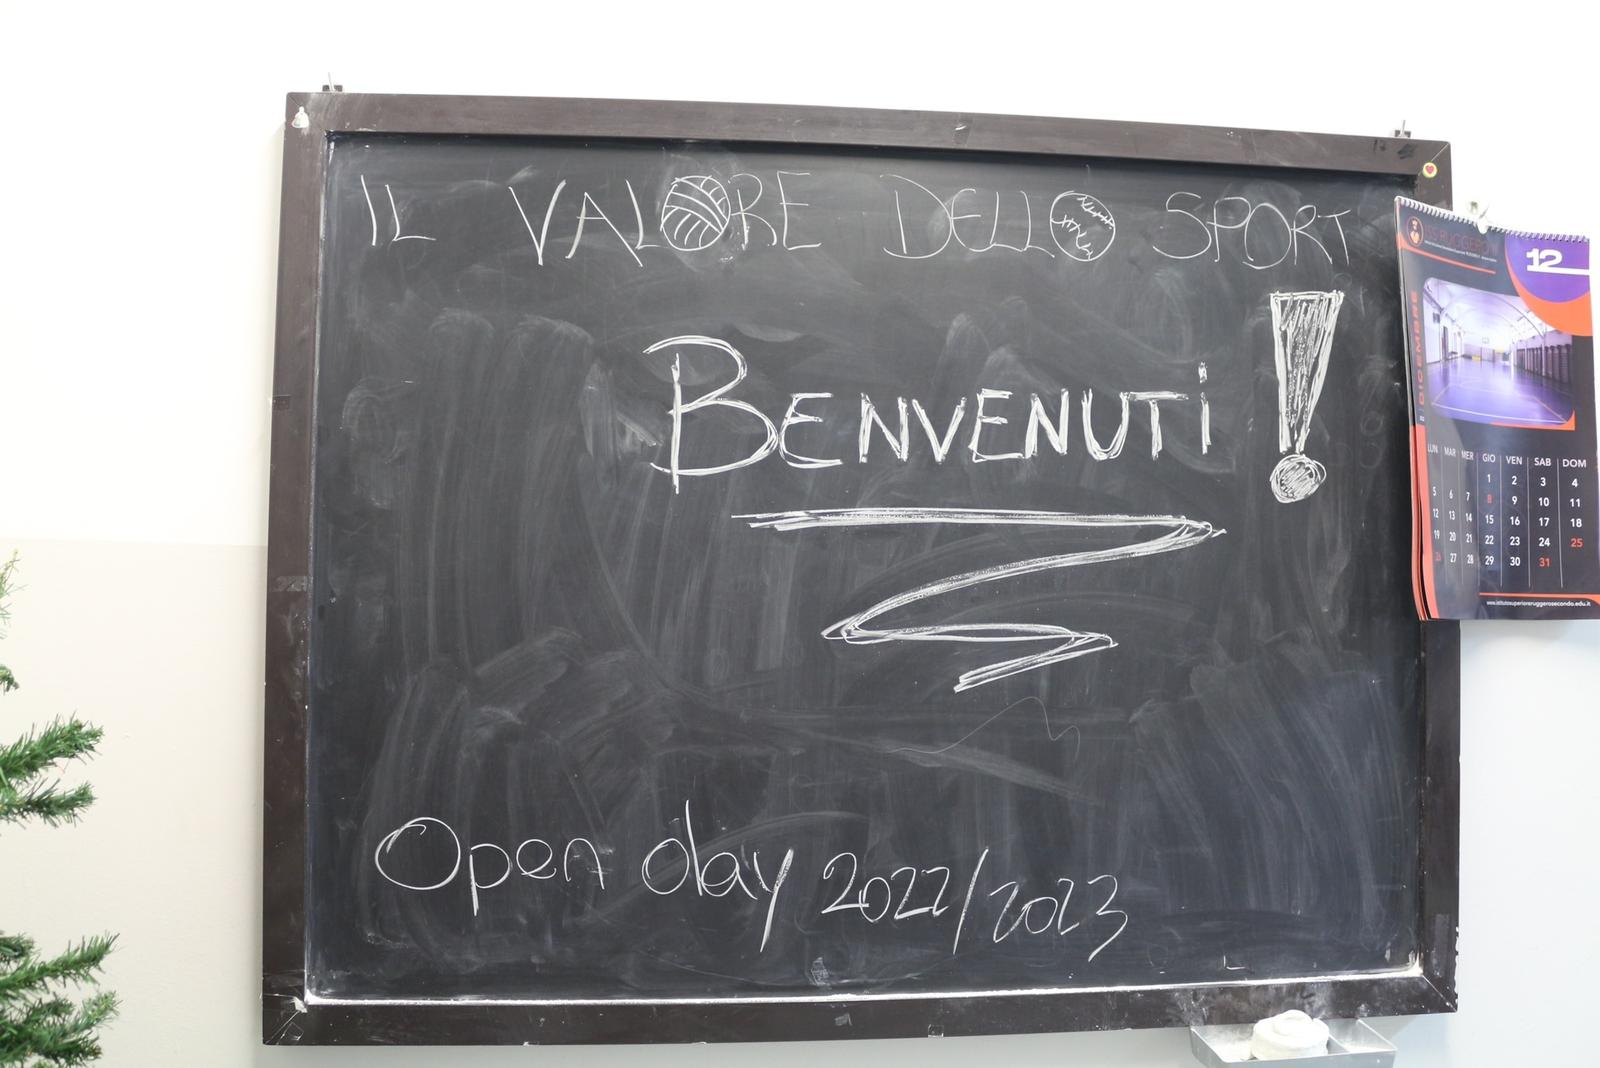 IL VALORE DELLO SPORT
BENVENUTI !
Open day 2022/2023
12
DICEMBRE
LUN MAR MER GIO VEN SAB DOM
1 2 3 4
5 6 7 8 9 10 11
12 13 14 15 16 17 18
19 20 21 22 23 24 25
26 27 28 29 30 31
www.istitutosuperioreruggerosecondo.edu.it